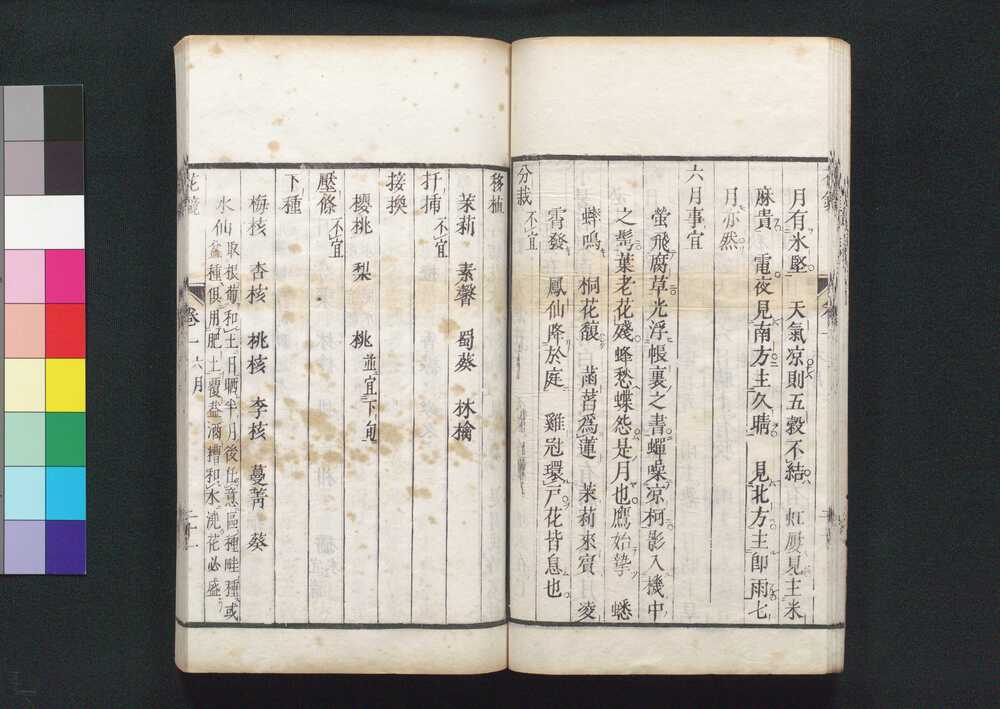 月有氷堅　天氣凉則五穀不結　虹屢見主米
麻貴　電夜見南方主久晴　見北方主即雨七
月亦然
六月事宜
螢飛腐草光浮帳裏之書蟬噪凉柯影入機中
之鬢葉老花殘蜂愁蝶怨是月也鷹始摯　蟋
蟀鳴　桐花馥　菡萏爲蓮　茉莉來賓　凌
霄發　鳳仙降於庭　雞冠環戸花皆息也
分栽 不宜
移植
茉莉　素馨　蜀葵　林檎
扦揷 不宜
接換
櫻桃　梨　桃 並宜下旬
壓條 不宜
下種
梅核　杏核　桃核　李核　蔓菁　葵
水仙 取根葡和土日晒半月後任意區種畦種或
盆種俱用肥土覆盐酒糟和水澆花必盛
花鏡　卷一　六月　二十二